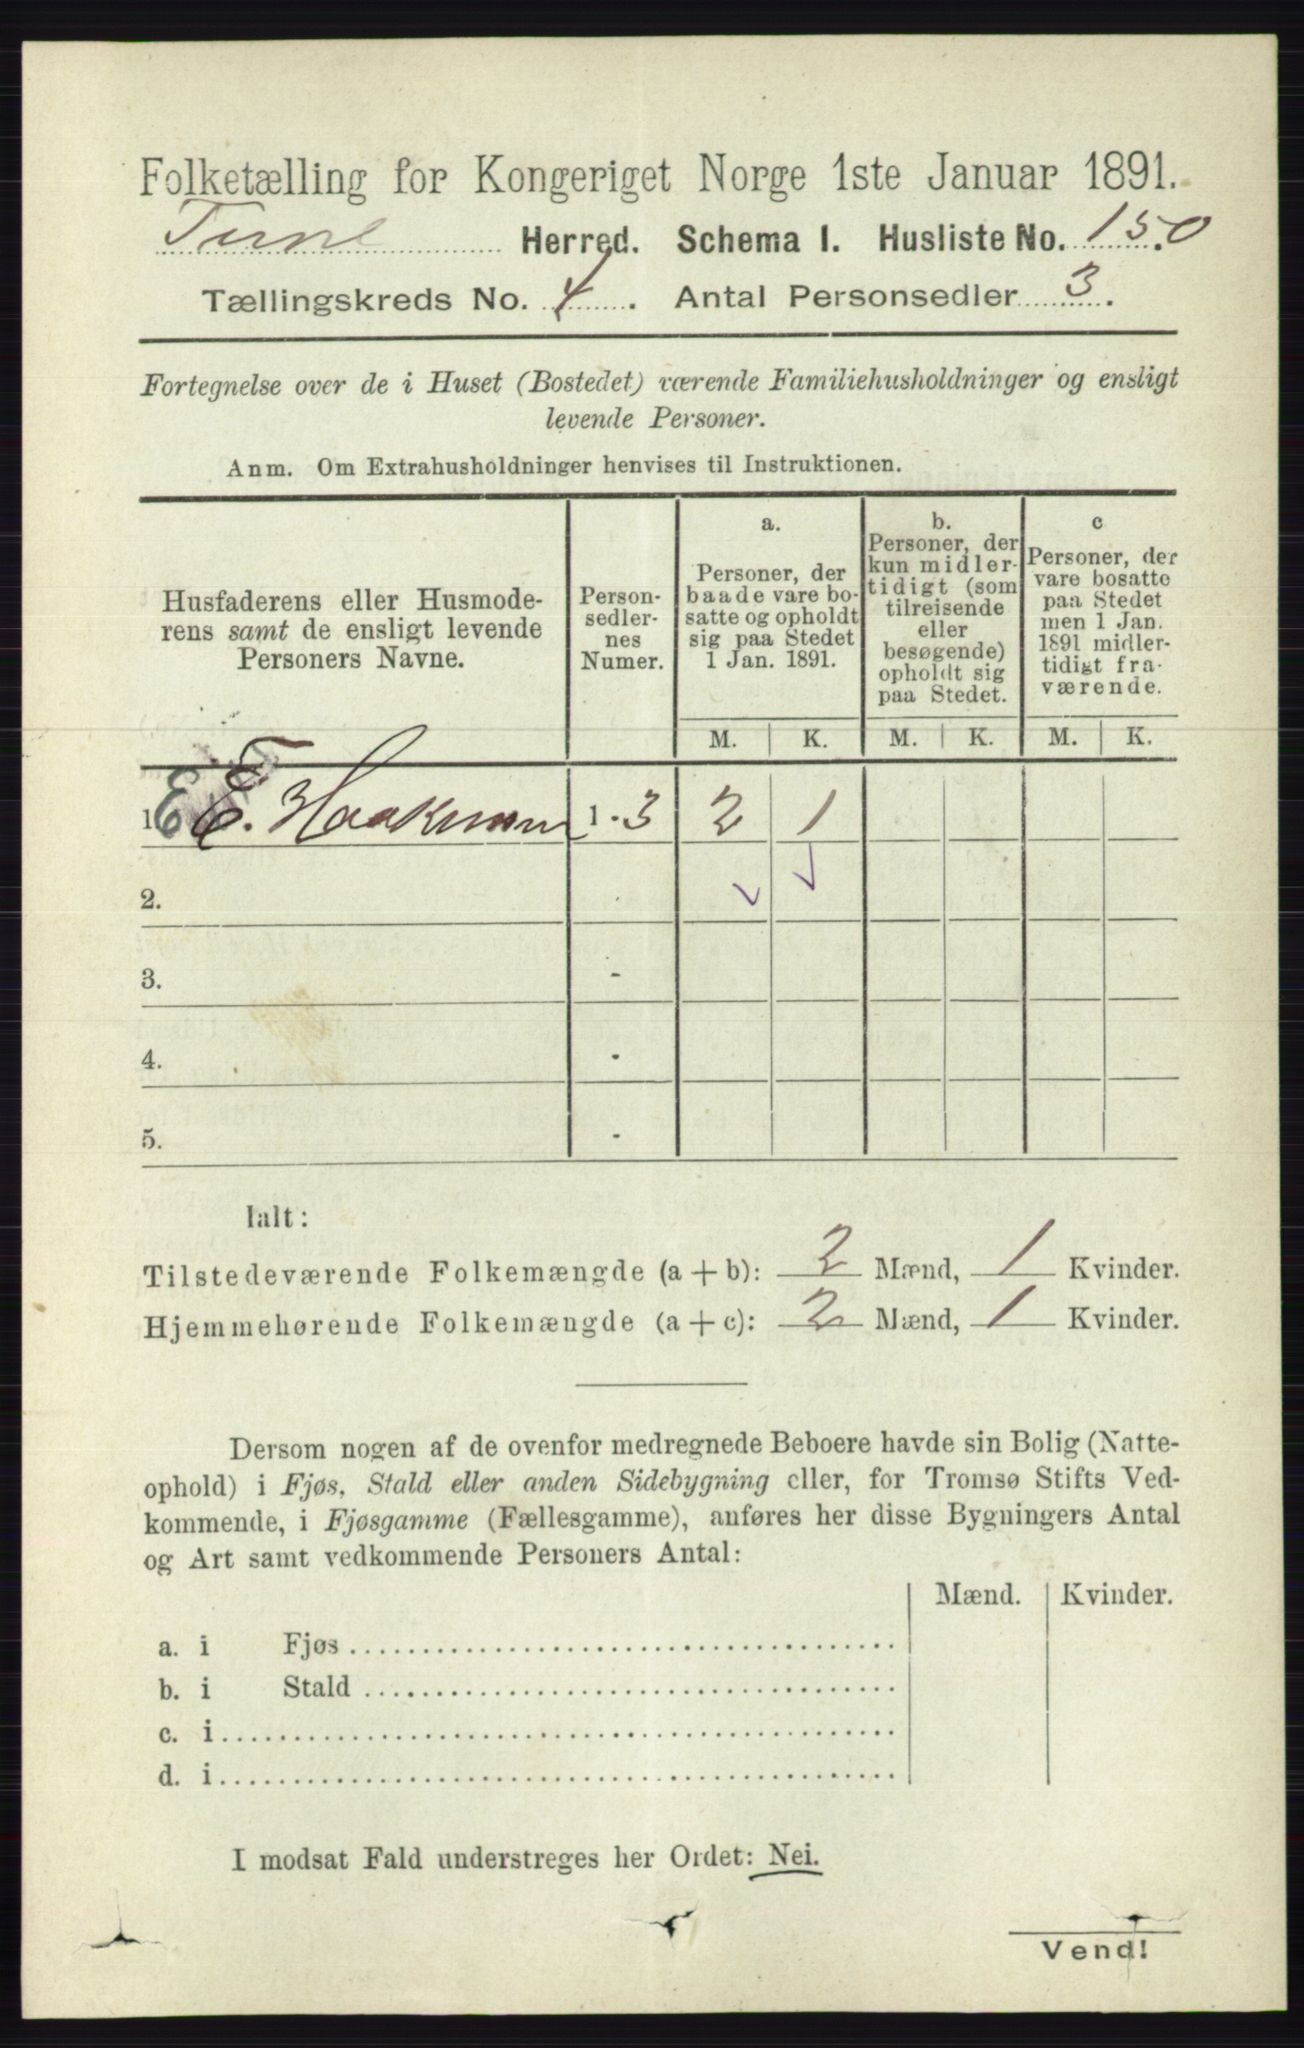 Folketælling for Kongeriget Norge 1ste Januar 1891.
Tune Herred. Schema I. Husliste No. 150
Tællingskreds No. 4. Antal Personsedler 3.
Fortegnelse over de i Huset (Bostedet) værende Familiehusholdninger og ensligt
levende Personer.
Anm. Om Extrahusholdninger henvises til Instruktionen.
Husfaderens eller Husmode-
rens samt de ensligt levende
Personers Navne.
Person-
sedler-
nes
Numer.
a.
Personer, der
baade vare bo-
satte og opholdt
sig paa Stedet
1 Jan. 1891.
b.
Personer, der
kun midler-
tidigt (som
tilreisende
eller
besøgende)
opholdt sig
paa Stedet.
c
Personer, der
vare bosatte
paa Stedet
men 1 Jan.
1891 midler-
tidigt fra-
værende.
M. K. M. K. M. K.
1 E E. Haakensen 1 - 3 2 1
2.
3. -
4. -
5. -
Ialt:
Tilstedeværende Folkemængde (a + b): 2 Mænd, 1 Kvinder.
Hjemmehørende Folkemængde (a + c): 2 Mænd, 1 Kvinder.
Dersom nogen af de ovenfor medregnede Beboere havde sin Bolig (Natte-
ophold) i Fjøs, Stald eller anden Sidebygning eller, for Tromsø Stifts Ved-
kommende, i Fjøsgamme (Fællesgamme), anføres her disse Bygningers Antal
og Art samt vedkommende Personers Antal:
Mænd. Kvinder.
a. i Fjøs
b. i Stald
c. i
d. i
I modsat Fald understreges her Ordet: Nei.
Vend!